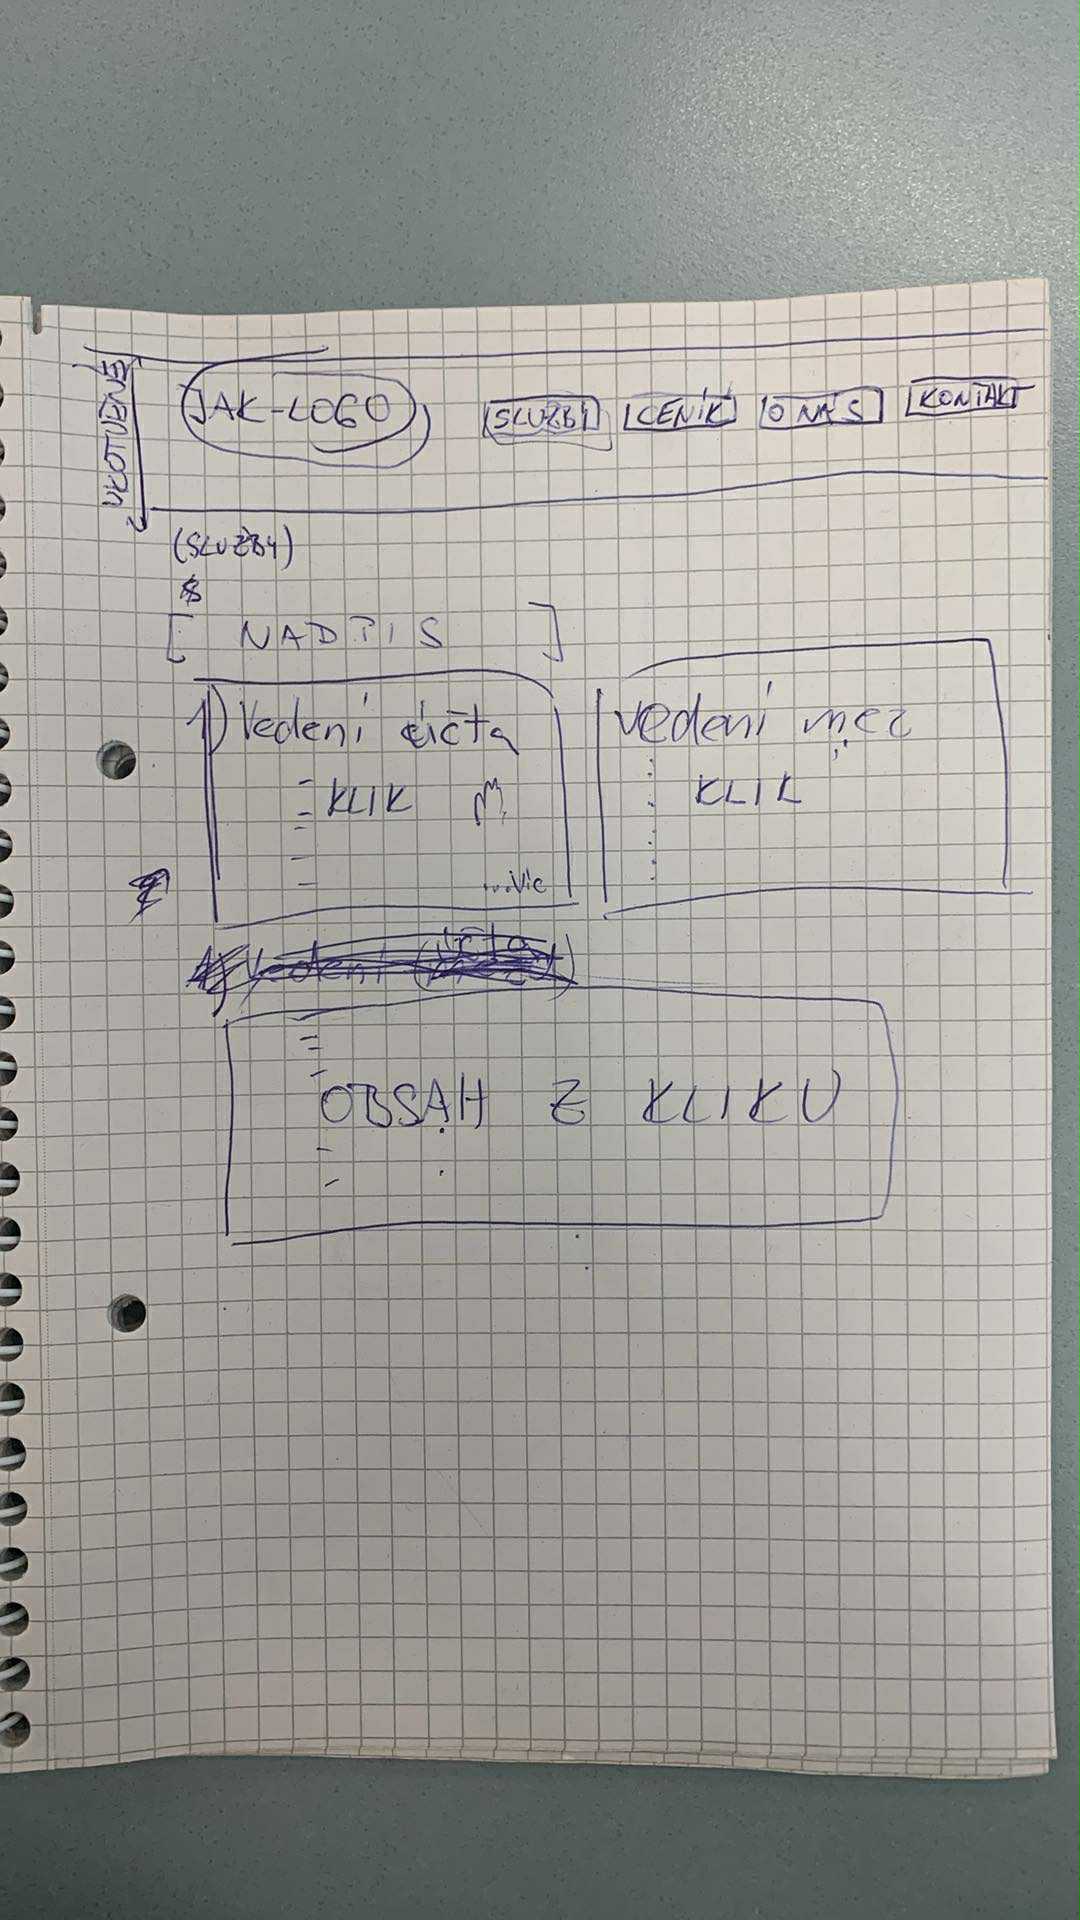 UKOTVENÉ
JAK-LOGO SLUŽBY CENÍK O NÁS KONTAKT
(SLUŽBY)
[ NADPIS ]
1) Vedení účta
KLIK
...Víc
vedení mez
KLIK
OBSAH Z KLIKU